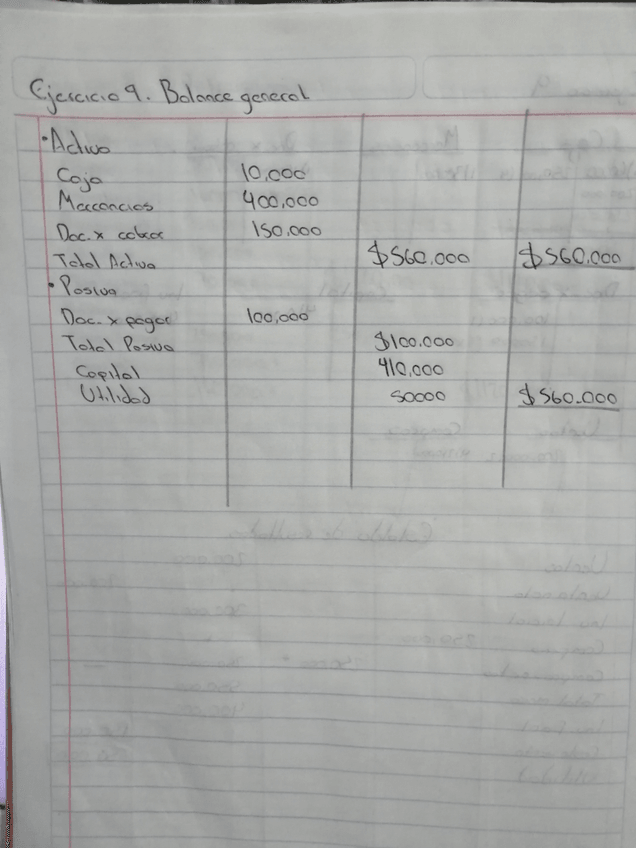 Ejercicio 9. Balance general
• Activo
Caja 10,000
Mercancias 400,000
Doc. x cobrar 150,000
Total Activo $560.000 $560.000
• Pasivo
Doc. x pagar 100,000
Total Pasivo $100.000
Capital 410,000
Utilidad 50000 $560.000